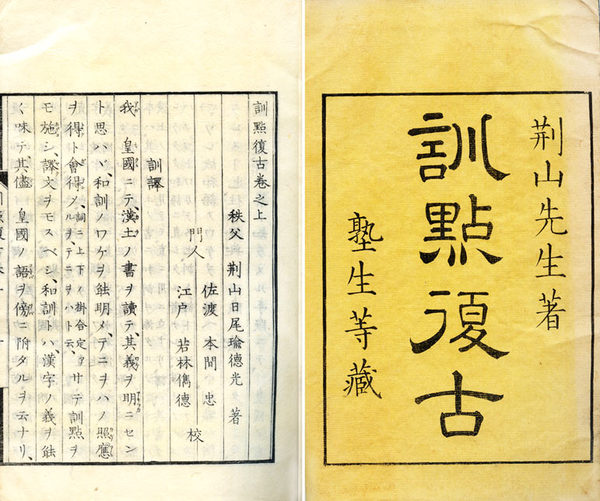 荊山先生著
訓點復古
塾生等藏
訓點復古卷之上
秩父 荊山日尾瑜德光 著
門人
佐渡 本間 忠
江戶 若林儁德
校
訓譯
我 皇國ニテ、漢土ノ書ヲ讀テ、其義ヲ明ニセン
ト思ハヾ、和訓ノワケヲ能明メ、テニヲハノ照應
ヲ得ト會得 詞ニ上下ノ掛合定 ルヲ、テニヲハト云、 サテ訓點ヲ
モ施シ、譯文ヲモスベシ、和訓トハ漢字ノ義ヲ能
ク味テ其儘 皇國ノ語ヲ傍ニ附タルヲ云ナリ、